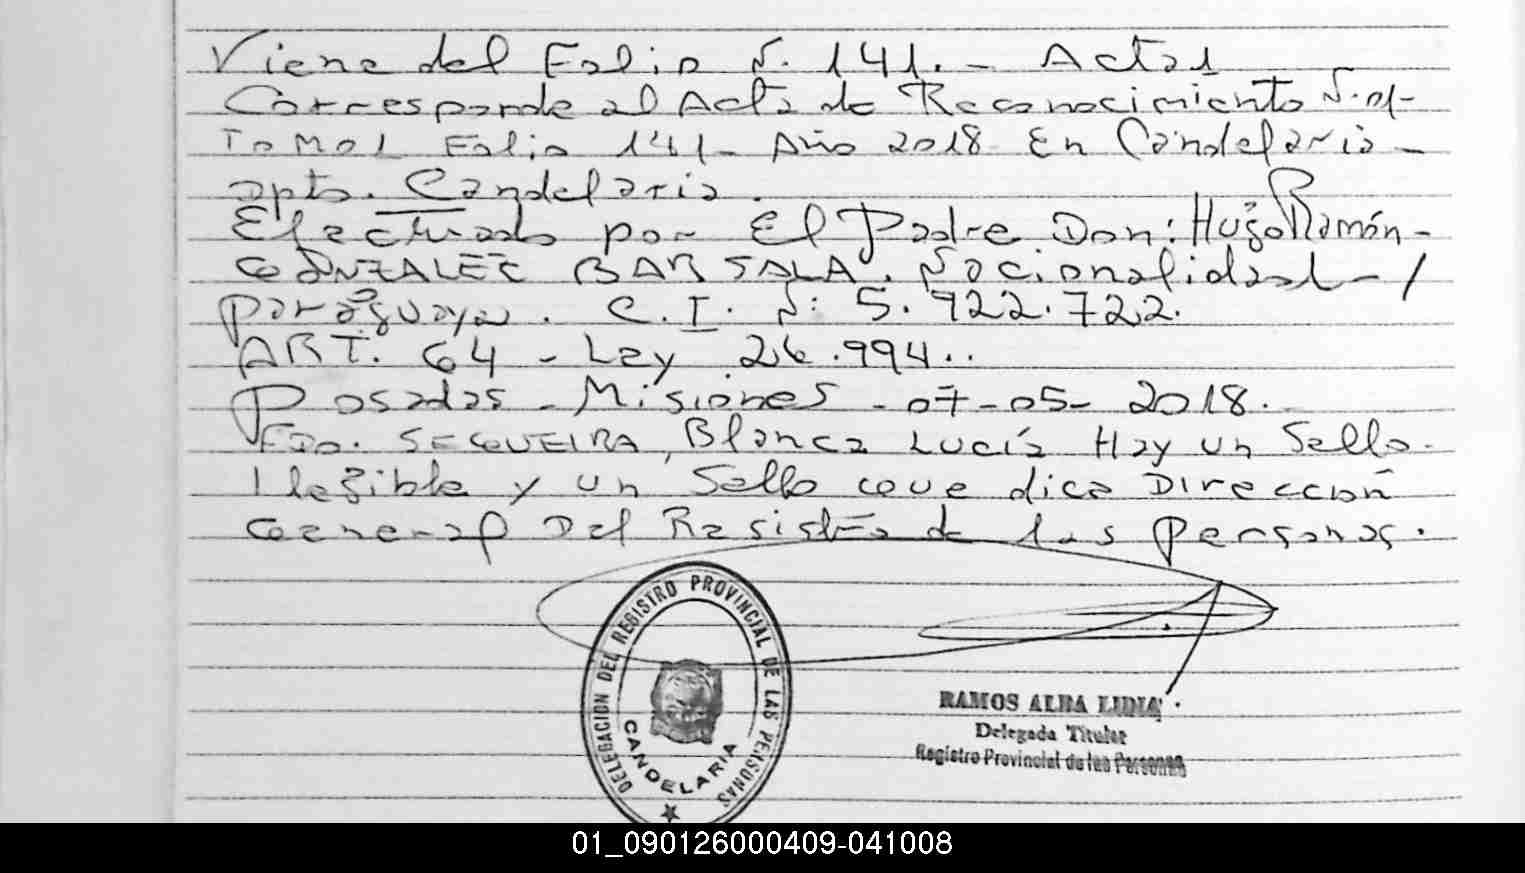 Viene del Folio N. 141. - Acta 1
Corresponde al Acta de Reconocimiento N. 01-
Tomo 1 Folio 141- Año 2018 En Candelaria -
Dpto. Candelaria.
Efectuado por El Padre Don: Hugo Ramón -
GONZALEZ BARSALA. Nacionalidad - /
paraguaya. C.I. N: 5.922.722.
ART. 64 - Ley 26.994..
Posadas - Misiones - 07-05- 2018.
FDO. SEQUEIRA, Blanca Lucía Hay un Sello.
Ilegible y un Sello que dice Dirección
General Del Registro de las Personas.
DELEGACION DEL REGISTRO PROVINCIAL DE LAS PERSONAS
CANDELARIA
RAMOS ALBA LIDIA
Delegada Titular
Registro Provincial de las Personas
01_090126000409-041008